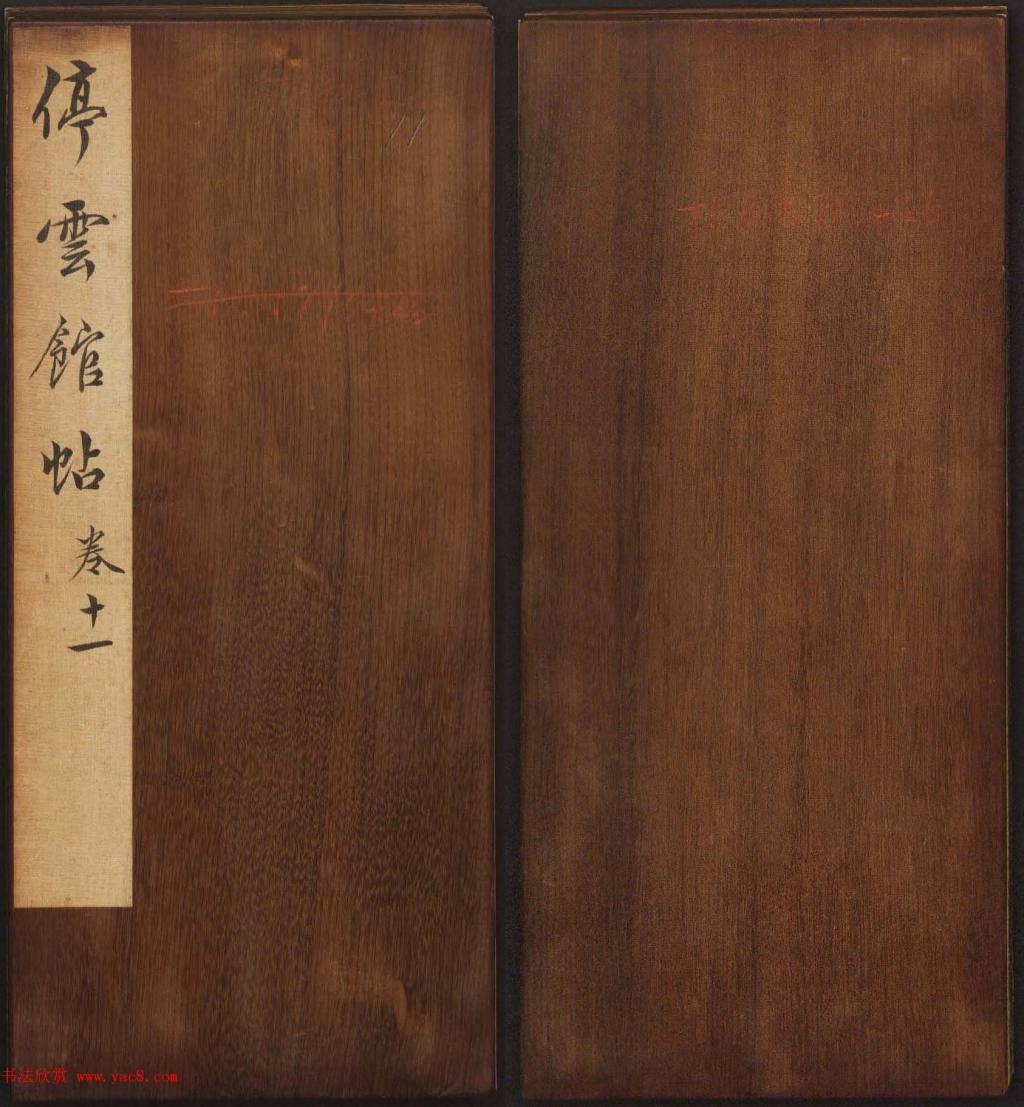 停雲館帖
卷十一
11
书法欣赏 www.yac8.com